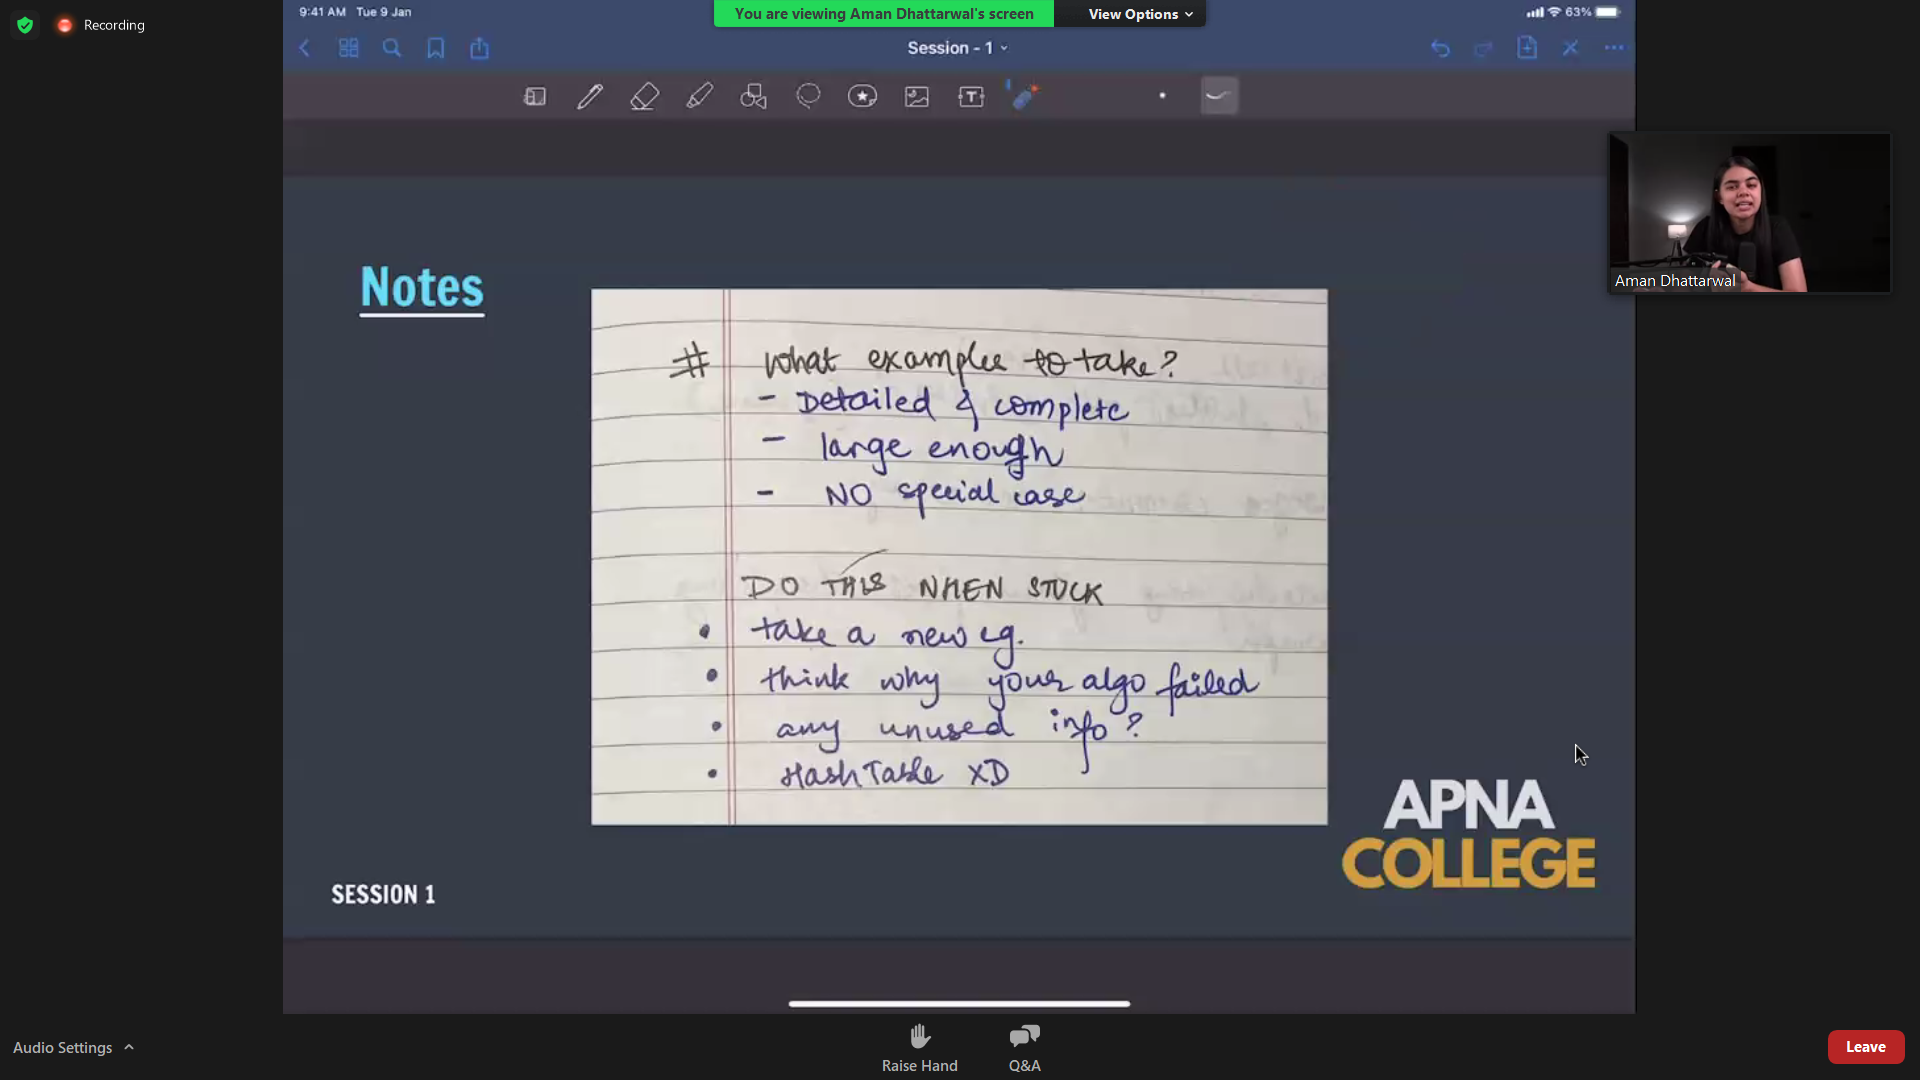 9:41 AM Tue 9 Jan
You are viewing Aman Dhattarwal's screen
View Options
63%
Recording
Session - 1
T
Aman Dhattarwal
Notes
# What examples to take?
- Detailed & complete
- large enough
- NO special case
DO THIS WHEN STUCK
• take a new eg.
• think why your algo failed
• any unused info?
• HashTable XD
APNA
COLLEGE
SESSION 1
Audio Settings
Raise Hand
Q&A
Leave